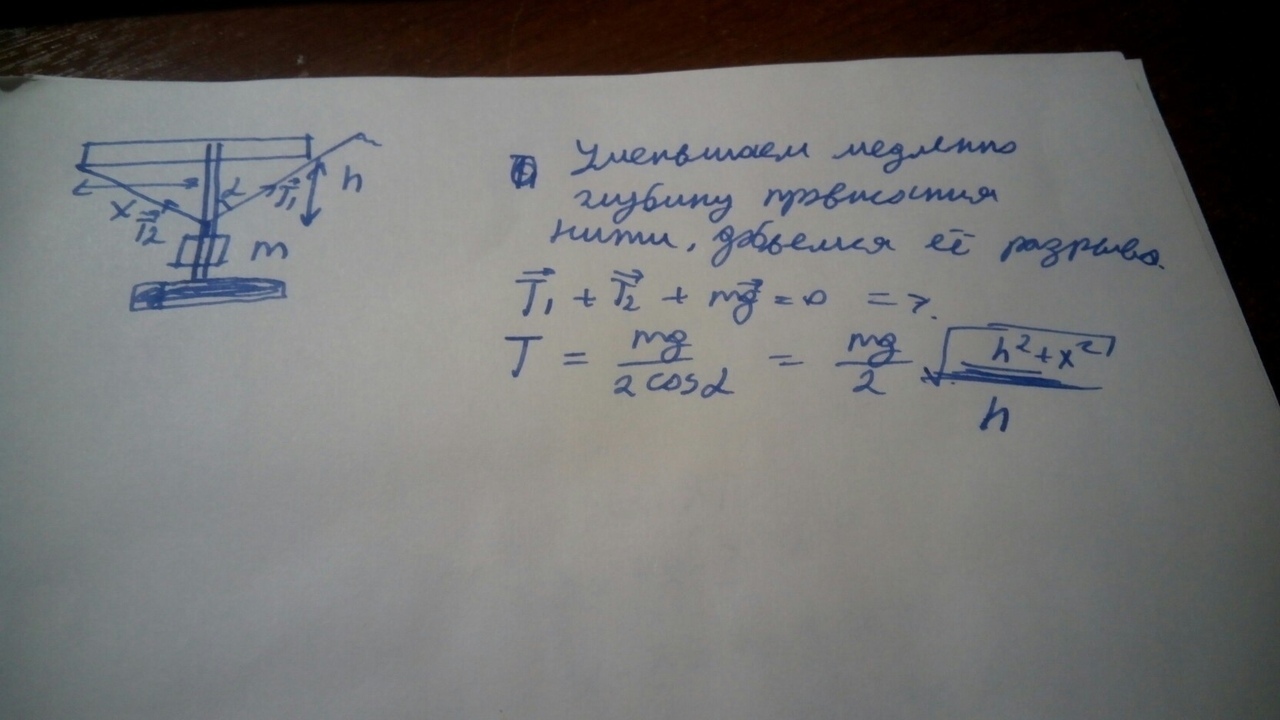 h
α
T⃗₁
x
T⃗₂
m
Уменьшаем медленно
глубину провисания
нити, добьемся её разрыва.
T⃗₁ + T⃗₂ + mg⃗ = 0 =>
T = mg / 2 cos α = mg / 2 √h² + x² / h